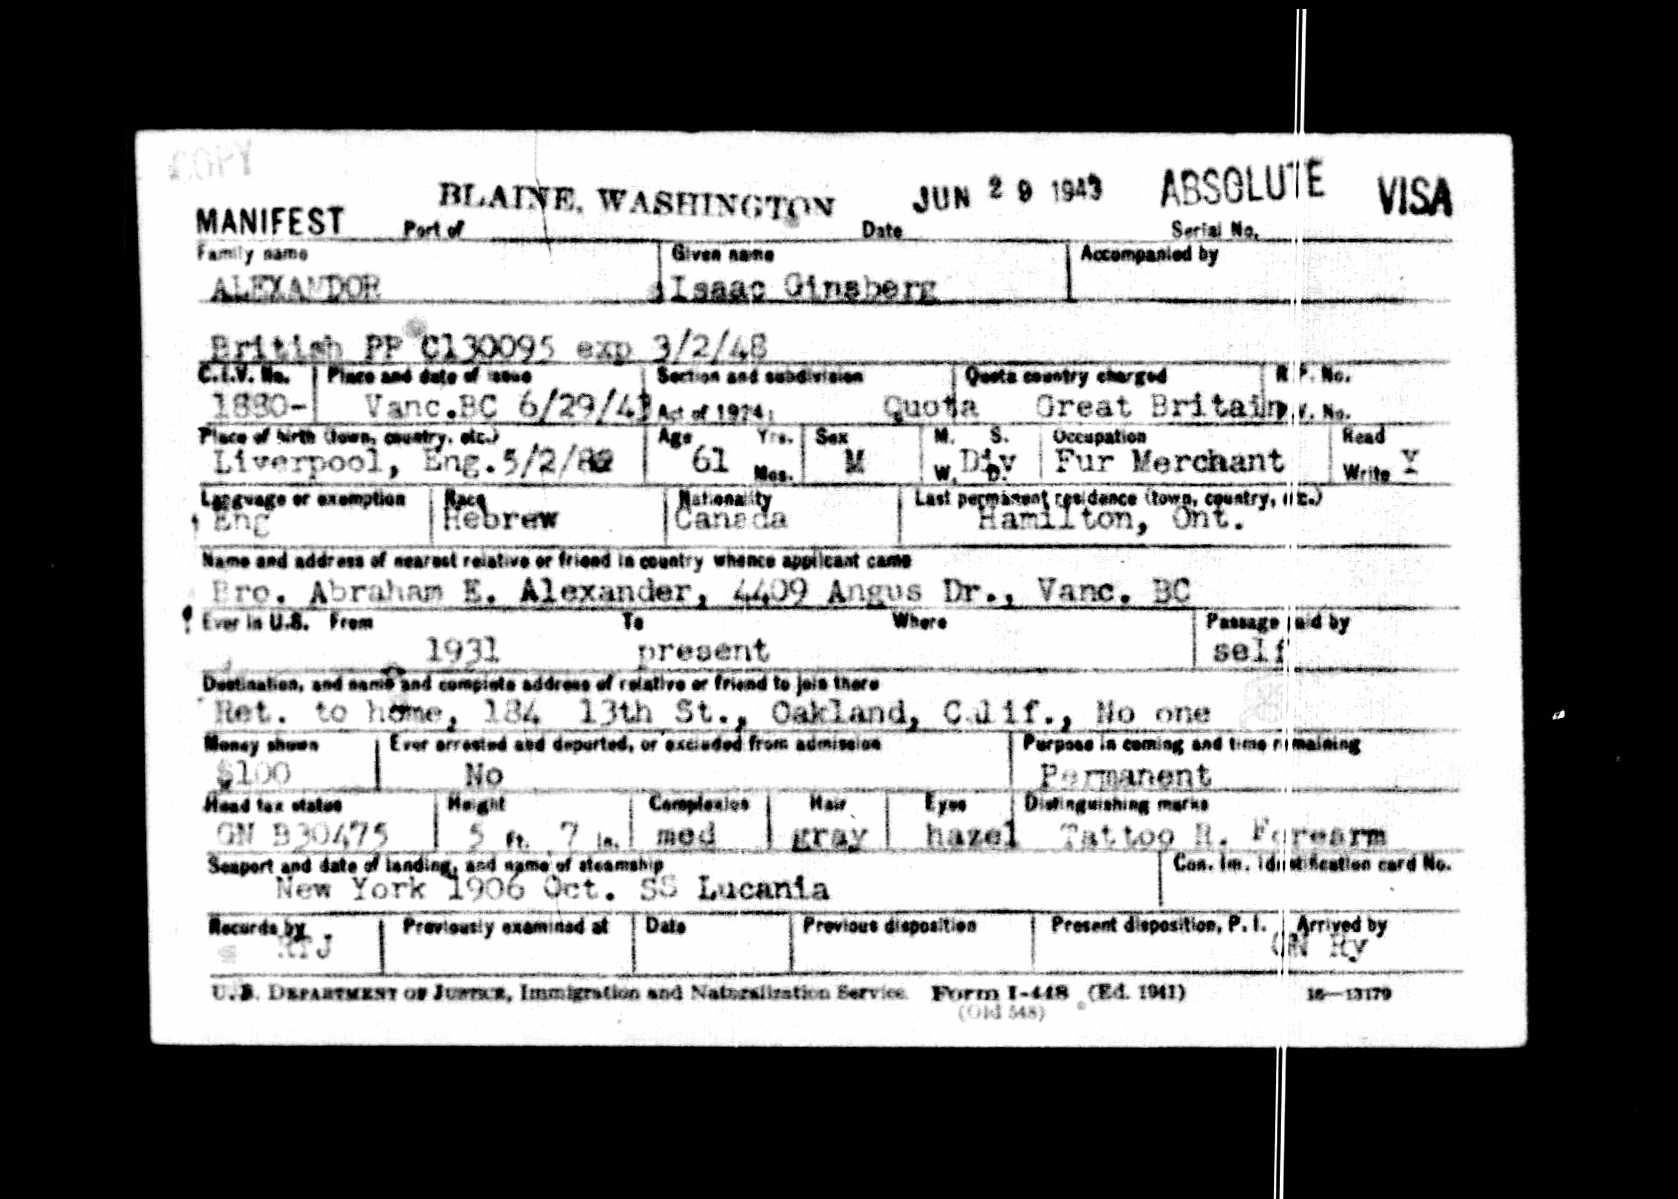 COPY
BLAINE, WASHINGTON JUN 29 1943 ABSOLUTE VISA
MANIFEST Port of Date Serial No.
Family name Given name Accompanied by
ALEXANDOR Isaac Ginsberg
British PP C130095 exp 3/2/48
C.I.V. No. Place and date of issue Section and subdivision Quota country charged R.P. No.
1880- Vanc.BC 6/29/43 Act of 1924: Quota Great Britain P.V. No.
Place of birth (town, country, etc.) Age Yrs. Sex M. S. Occupation Read
Liverpool, Eng. 5/2/82 61 Mos. M W. Div D. Fur Merchant Write Y
Language or exemption Race Nationality Last permanent residence (town, country, etc.)
Eng Hebrew Canada Hamilton, Ont.
Name and address of nearest relative or friend in country whence applicant came
Bro. Abraham E. Alexander, 4409 Angus Dr., Vanc. BC
Ever in U.S. From To Where Passage paid by
1931 present self
Destination, and name and complete address of relative or friend to join there
Ret. to home, 184 13th St., Oakland, Calif., No one
Money shown Ever arrested and deported, or excluded from admission Purpose in coming and time remaining
$100 No Permanent
Head tax status Height Complexion Hair Eyes Distinguishing marks
GN B30475 5 ft. 7 in. med gray hazel Tattoo R. Forearm
Seaport and date of landing, and name of steamship Con. Im. identification card No.
New York 1906 Oct. SS Lucania
Records by Previously examined at Date Previous disposition Present disposition, P. I. Arrived by
RTJ GN Ry
U.S. DEPARTMENT OF JUSTICE, Immigration and Naturalization Service Form I-448 (Ed. 1941) 16—13179
(Old 548)